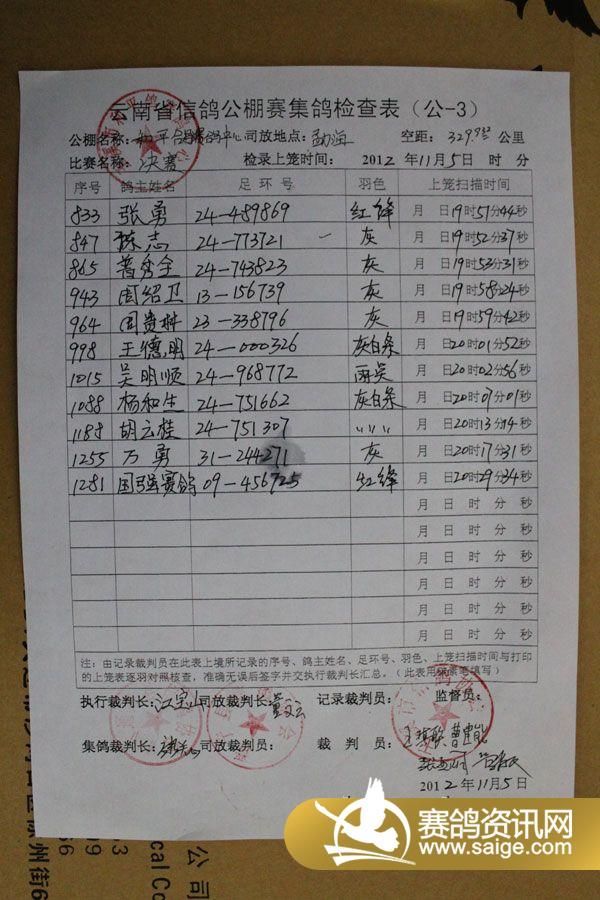 云南省信鸽公棚赛集鸽检查表（公-3）
公棚名称： 和平 中心 司放地点：勐海 空距：329. 公里
比赛名称：决赛 检录上笼时间：2012年11月5日 时 分
序号 鸽主姓名 足环号 羽色 上笼扫描时间
833 张勇 24-489869 红绛 月 日19时51分44秒
847 陈志 24-773721 灰 月 日19时52分37秒
865 普秀全 24-743823 灰 月 日19时53分31秒
943 周绍卫 13-156739 灰 月 日19时58分24秒
964 周贵林 23-338796 灰 月 日19时59分42秒
998 王德明 24-000326 灰白条 月 日20时01分52秒
1015 吴明顺 24-968772 雨 月 日20时02分56秒
1088 杨和生 24-751662 灰白条 月 日20时07分01秒
1188 胡云桂 24-751307 〃〃〃 月 日20时13分14秒
1255 万勇 31-244271 灰 月 日20时17分31秒
1281 国强赛鸽 09-456725 红绛 月 日20时29分34秒
月 日 时 分 秒
月 日 时 分 秒
月 日 时 分 秒
月 日 时 分 秒
月 日 时 分 秒
月 日 时 分 秒
注：由记录裁判员在此表上填所记录的序号、鸽主姓名、足环号、羽色、上笼扫描时间与打印
的上笼表逐羽对照核查，准确无误后签字并交执行裁判长汇总。（此表用 笔填写）
执行裁判长： 司放裁判长： 记录裁判员： 监督员：
集鸽裁判长： 司放裁判员： 裁判员：
2012年11月5日
赛鸽资讯网
www.saige.com
公司
cal Co
州街6